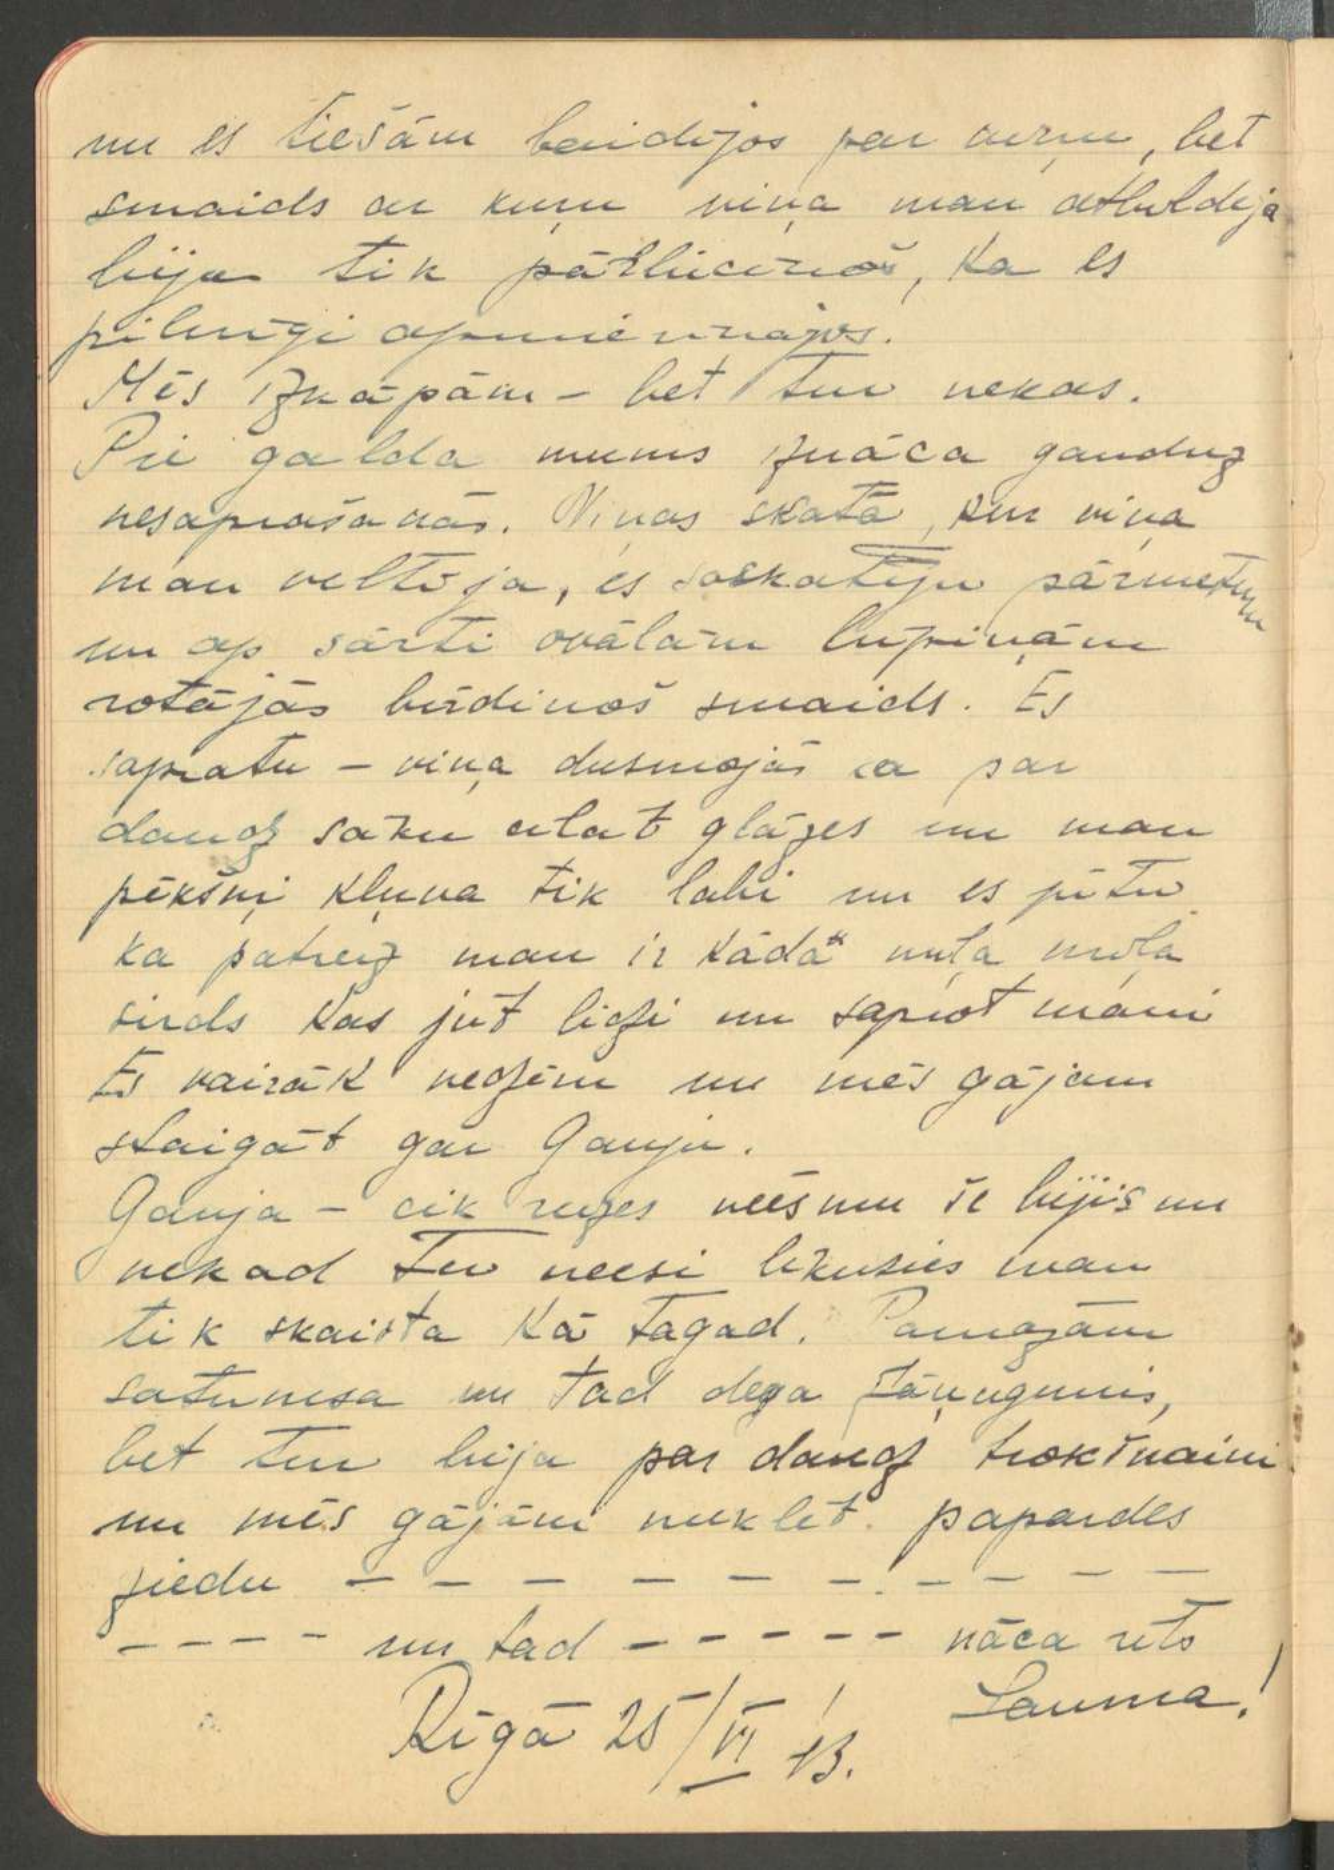 un es tiešām baidijos par viņu, bet
smaids ar kuņu viņa man atbildēja
bija tik pārliecinošs, ka es
pilnīgi apmierinājos.
Mēs izkāpām – bet tur nekas.
Pie galda mums iznāca gandrīz
nesaprašanās. Viņas skatā, kur viņa
man veltīja, es saskatīju pārmetumu
un ap sārti ovālām lūpiņām
rotājās būdinošs smaids. Es
sapratu – viņa dusmojās ka par
daudz sāku cilāt glāzes un man
pēkšņi kļuva tik labi un es jūtu
ka patreiz man ir kāda mīļa mīļa
sirds kas jūt līdzi un saprot mani
Es vairāk nedzēru un mēs gājām
staigāt gar Gauju.
Gauja – cik reizes neesmu še bijis un
nekad Tu neesi likusies man
tik skaista kā tagad. Pamazām
satumsa un tad dega Jāņugunis,
bet tur bija par daudz trokšņaini
un mēs gājām meklēt papardes
ziedu – – – – – – – – – – –
– – – – un tad – – – – – – nāca rīts
Lauma!
Rīgā 25/VI 43.